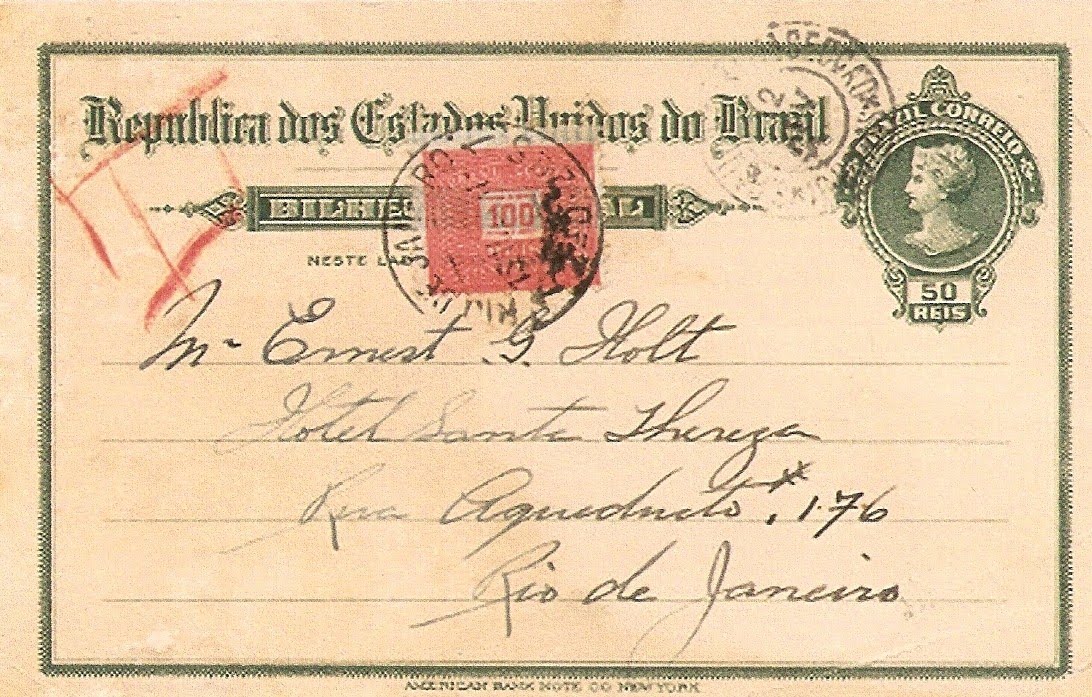 Republica dos Estados Unidos do Brazil
BRAZIL CORREIO
BILHETE POSTAL
NESTE LADO
100
50
REIS
RIO DE JANEIRO
Mr Ernest G. Holt
Hotel Santa Thereza
Rua Aqueducto, 176
Rio de Janeiro
AMERICAN BANK NOTE CO NEW YORK